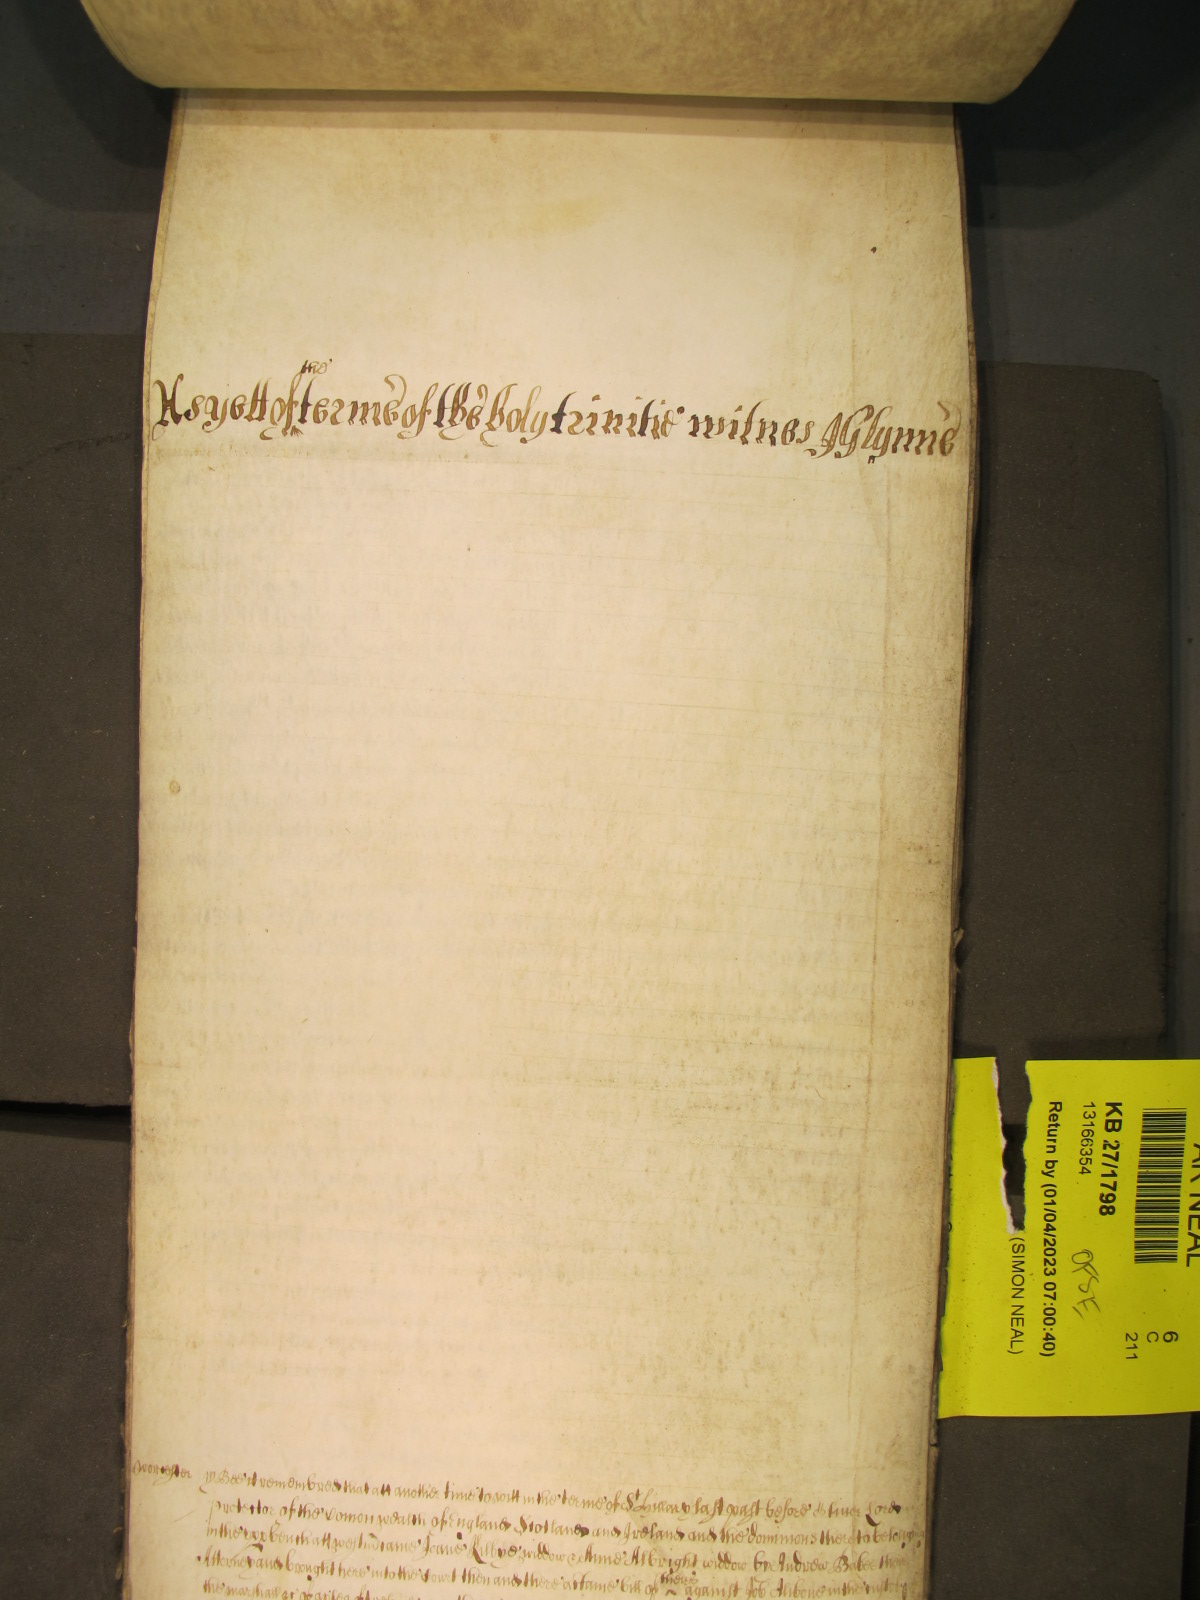 As yett of the terme of the holy trinitie witnes J Glynne
Worcester Bee it remembred that att another time to witt in the terme of St Hillary last past before Oliver Lord
Protector of the Comon wealth of England Scotland and Ireland and the dominions thereto belong
in the upp bench att westm came Joane widdow & Anne Albright widdow by Andrew Baker their
Attorney and brought here into the Court then and there a certaine bill of theirs against Job in the custody
the marshall
AR NEAL
KB 27/1798
13166354
Return by (01/04/2023 07:00:40)
(SIMON NEAL)
6
C
211